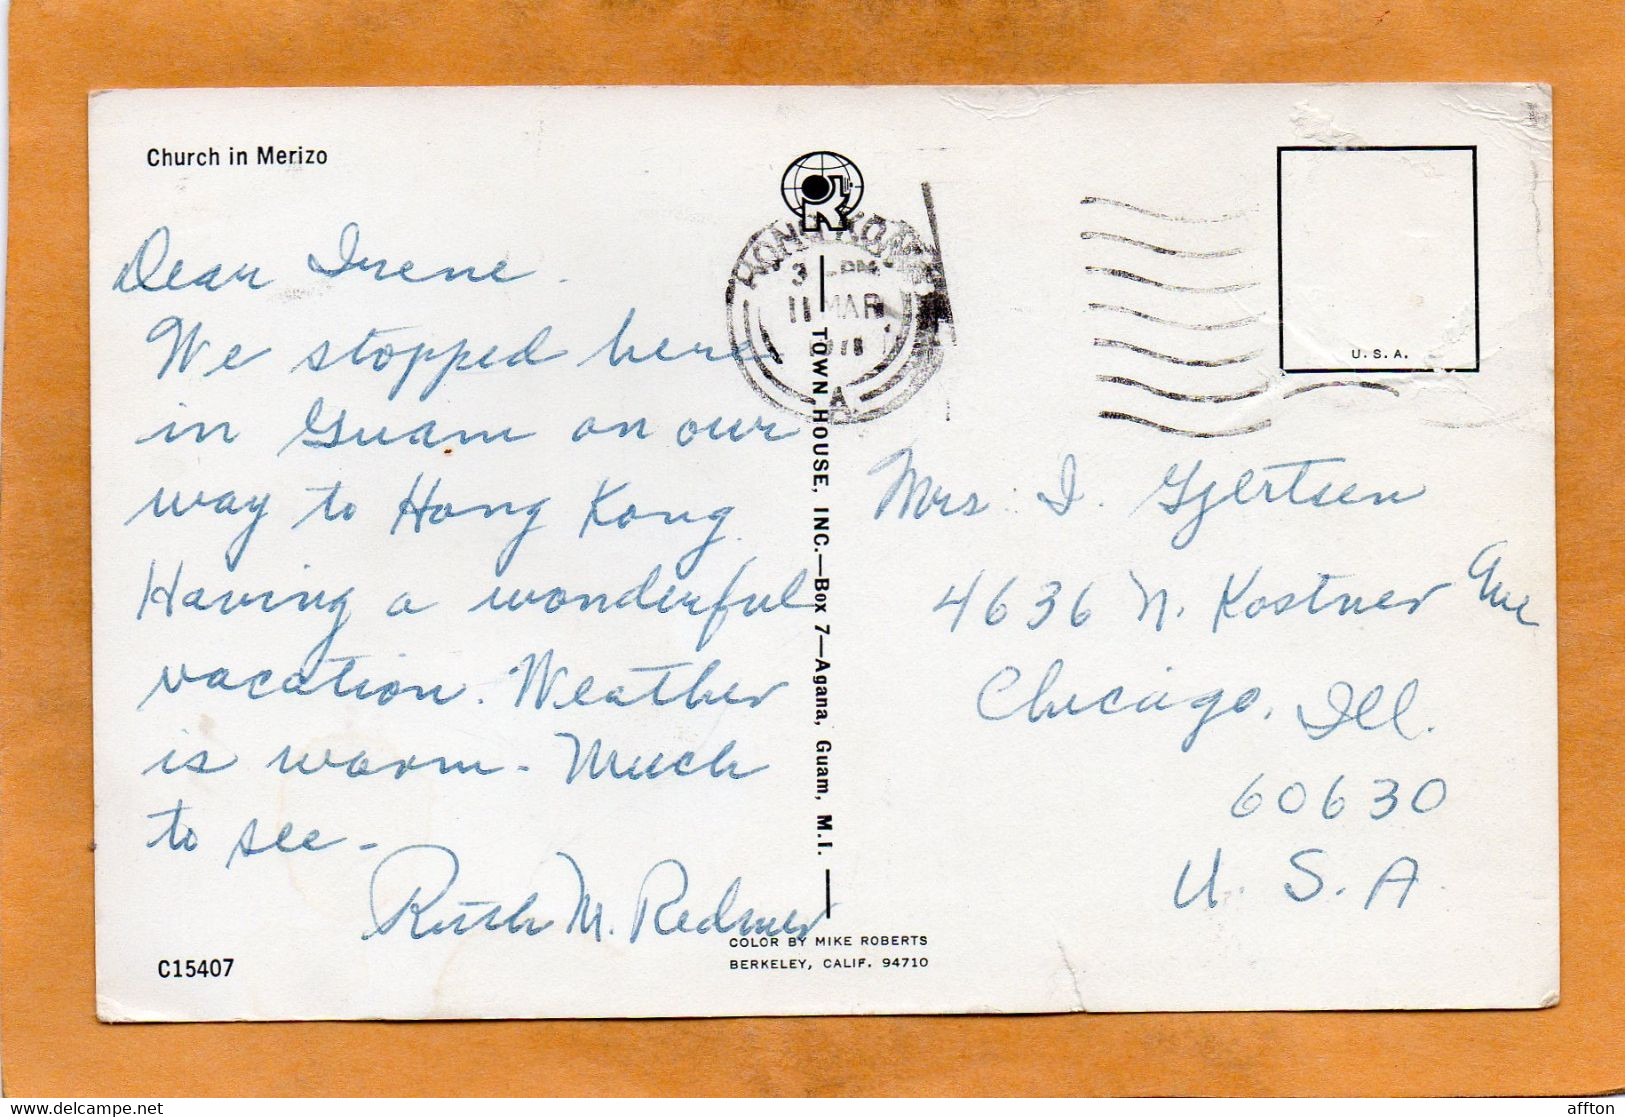 Church in Merizo
Dear Irene.
We stopped here
in Guam on our
way to Hong Kong.
Having a wonderful
vacation. Weather
is warm - Much
to see -
Ruth M. Redmer
C15407
HONG KONG
11 MAR
A
TOWN HOUSE, INC.—Box 7—Agana, Guam, M.I.
COLOR BY MIKE ROBERTS
BERKELEY, CALIF. 94710
U.S.A.
Mrs. I. Gjertsen
4636 N. Kostner Ave
Chicago, Ill.
60630
U.S.A.
affton